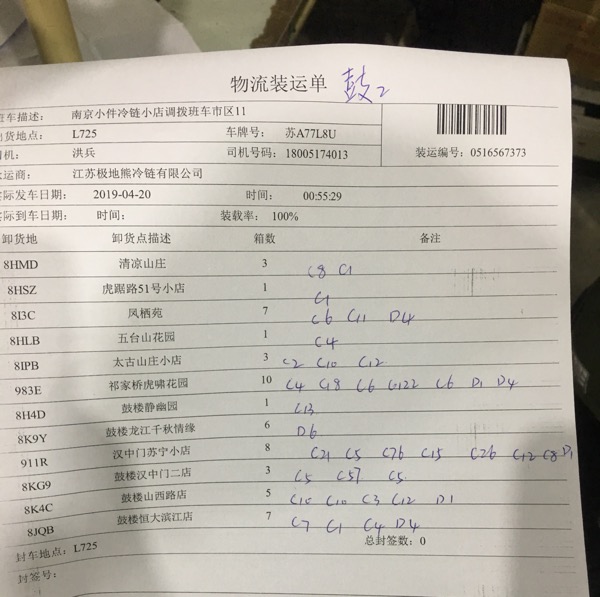 物流装运单 鼓2
班车描述: 南京小件冷链小店调拨班车市区11
出货地点: L725 车牌号: 苏A77L8U
司机: 洪兵 司机号码: 18005174013 装运编号: 0516567373
承运商: 江苏极地熊冷链有限公司
实际发车日期: 2019-04-20 时间: 00:55:29
实际到车日期: 时间: 装载率: 100%
卸货地 卸货点描述 箱数 备注
8HMD 清凉山庄 3 C8 C1
8HSZ 虎踞路51号小店 1 C1
8I3C 凤栖苑 7 C6 C11 D4
8HLB 五台山花园 1 C4
8IPB 太古山庄小店 3 C2 C10 C12
983E 祁家桥虎啸花园 10 C4 C18 C6 C122 C6 D1 D4
8H4D 鼓楼静幽园 1 C13
8K9Y 鼓楼龙江千秋情缘 6 D6
911R 汉中门苏宁小店 8 C21 C5 C76 C15 C26 C12 C8 D1
8KG9 鼓楼汉中门二店 3 C5 C57 C5
8K4C 鼓楼山西路店 5 C10 C10 C3 C12 D1
8JQB 鼓楼恒大滨江店 7 C7 C1 C4 D4
封车地点: L725 总封签数: 0
封签号: